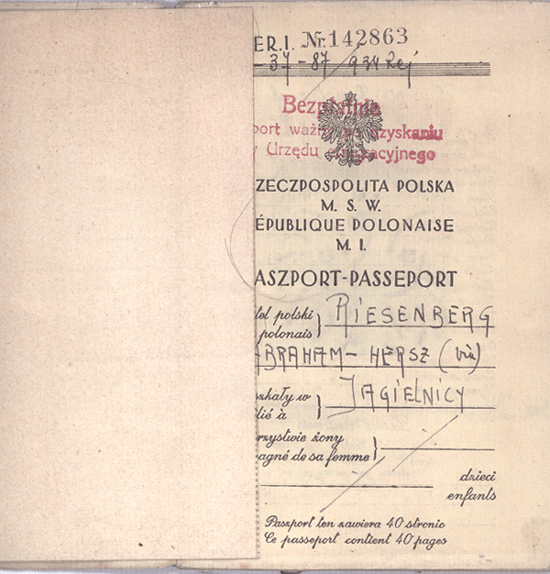 ER.I. Nr. 142863
-37-87 934 Rej
Bezpłatnie
port ważny po uzyskaniu
y Urzędu Emigracyjnego
ZECZPOSPOLITA POLSKA
M. S. W.
ÉPUBLIQUE POLONAISE
M. I.
ASZPORT-PASSEPORT
tel polski
polonais } RIESENBERG
BRAHAM-HERSZ (vin)
szkały w
ilié à } JAGIELNICY
arzystwie żony
agné de sa femme }
dzieci
enfants
Paszport ten zawiera 40 stronic
Ce passeport contient 40 pages